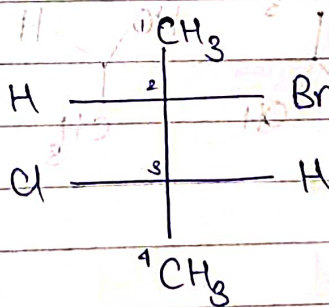 1 CH3
H 2 Br
Cl 3 H
4 CH3